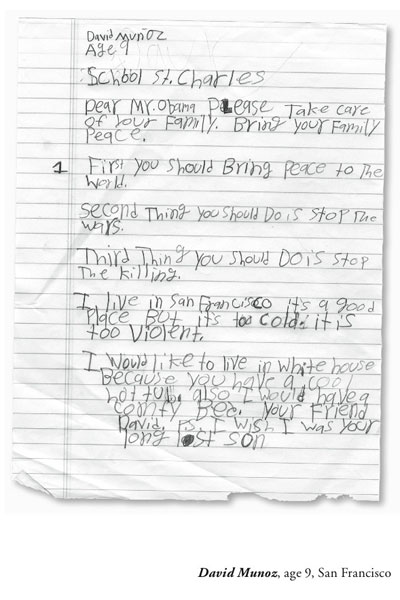 David Muñoz
Age 9
School St. Charles
Dear Mr. Obama PLease Take care
of Your Family. Bring your Family
Peace.
1 First you should Bring peace to The
World.
second Thing you should Do is stop The
wars.
Third Thing you should DO is stop
The killing.
I live in san Francisco it's a good
place But it's too cold. it is
too violent.
I would like to live in white house
Because you have a cool
hot tub. also I would have a
county Bec. your Friend
David, P.s. I wish I was your
long lost son
David Munoz, age 9, San Francisco